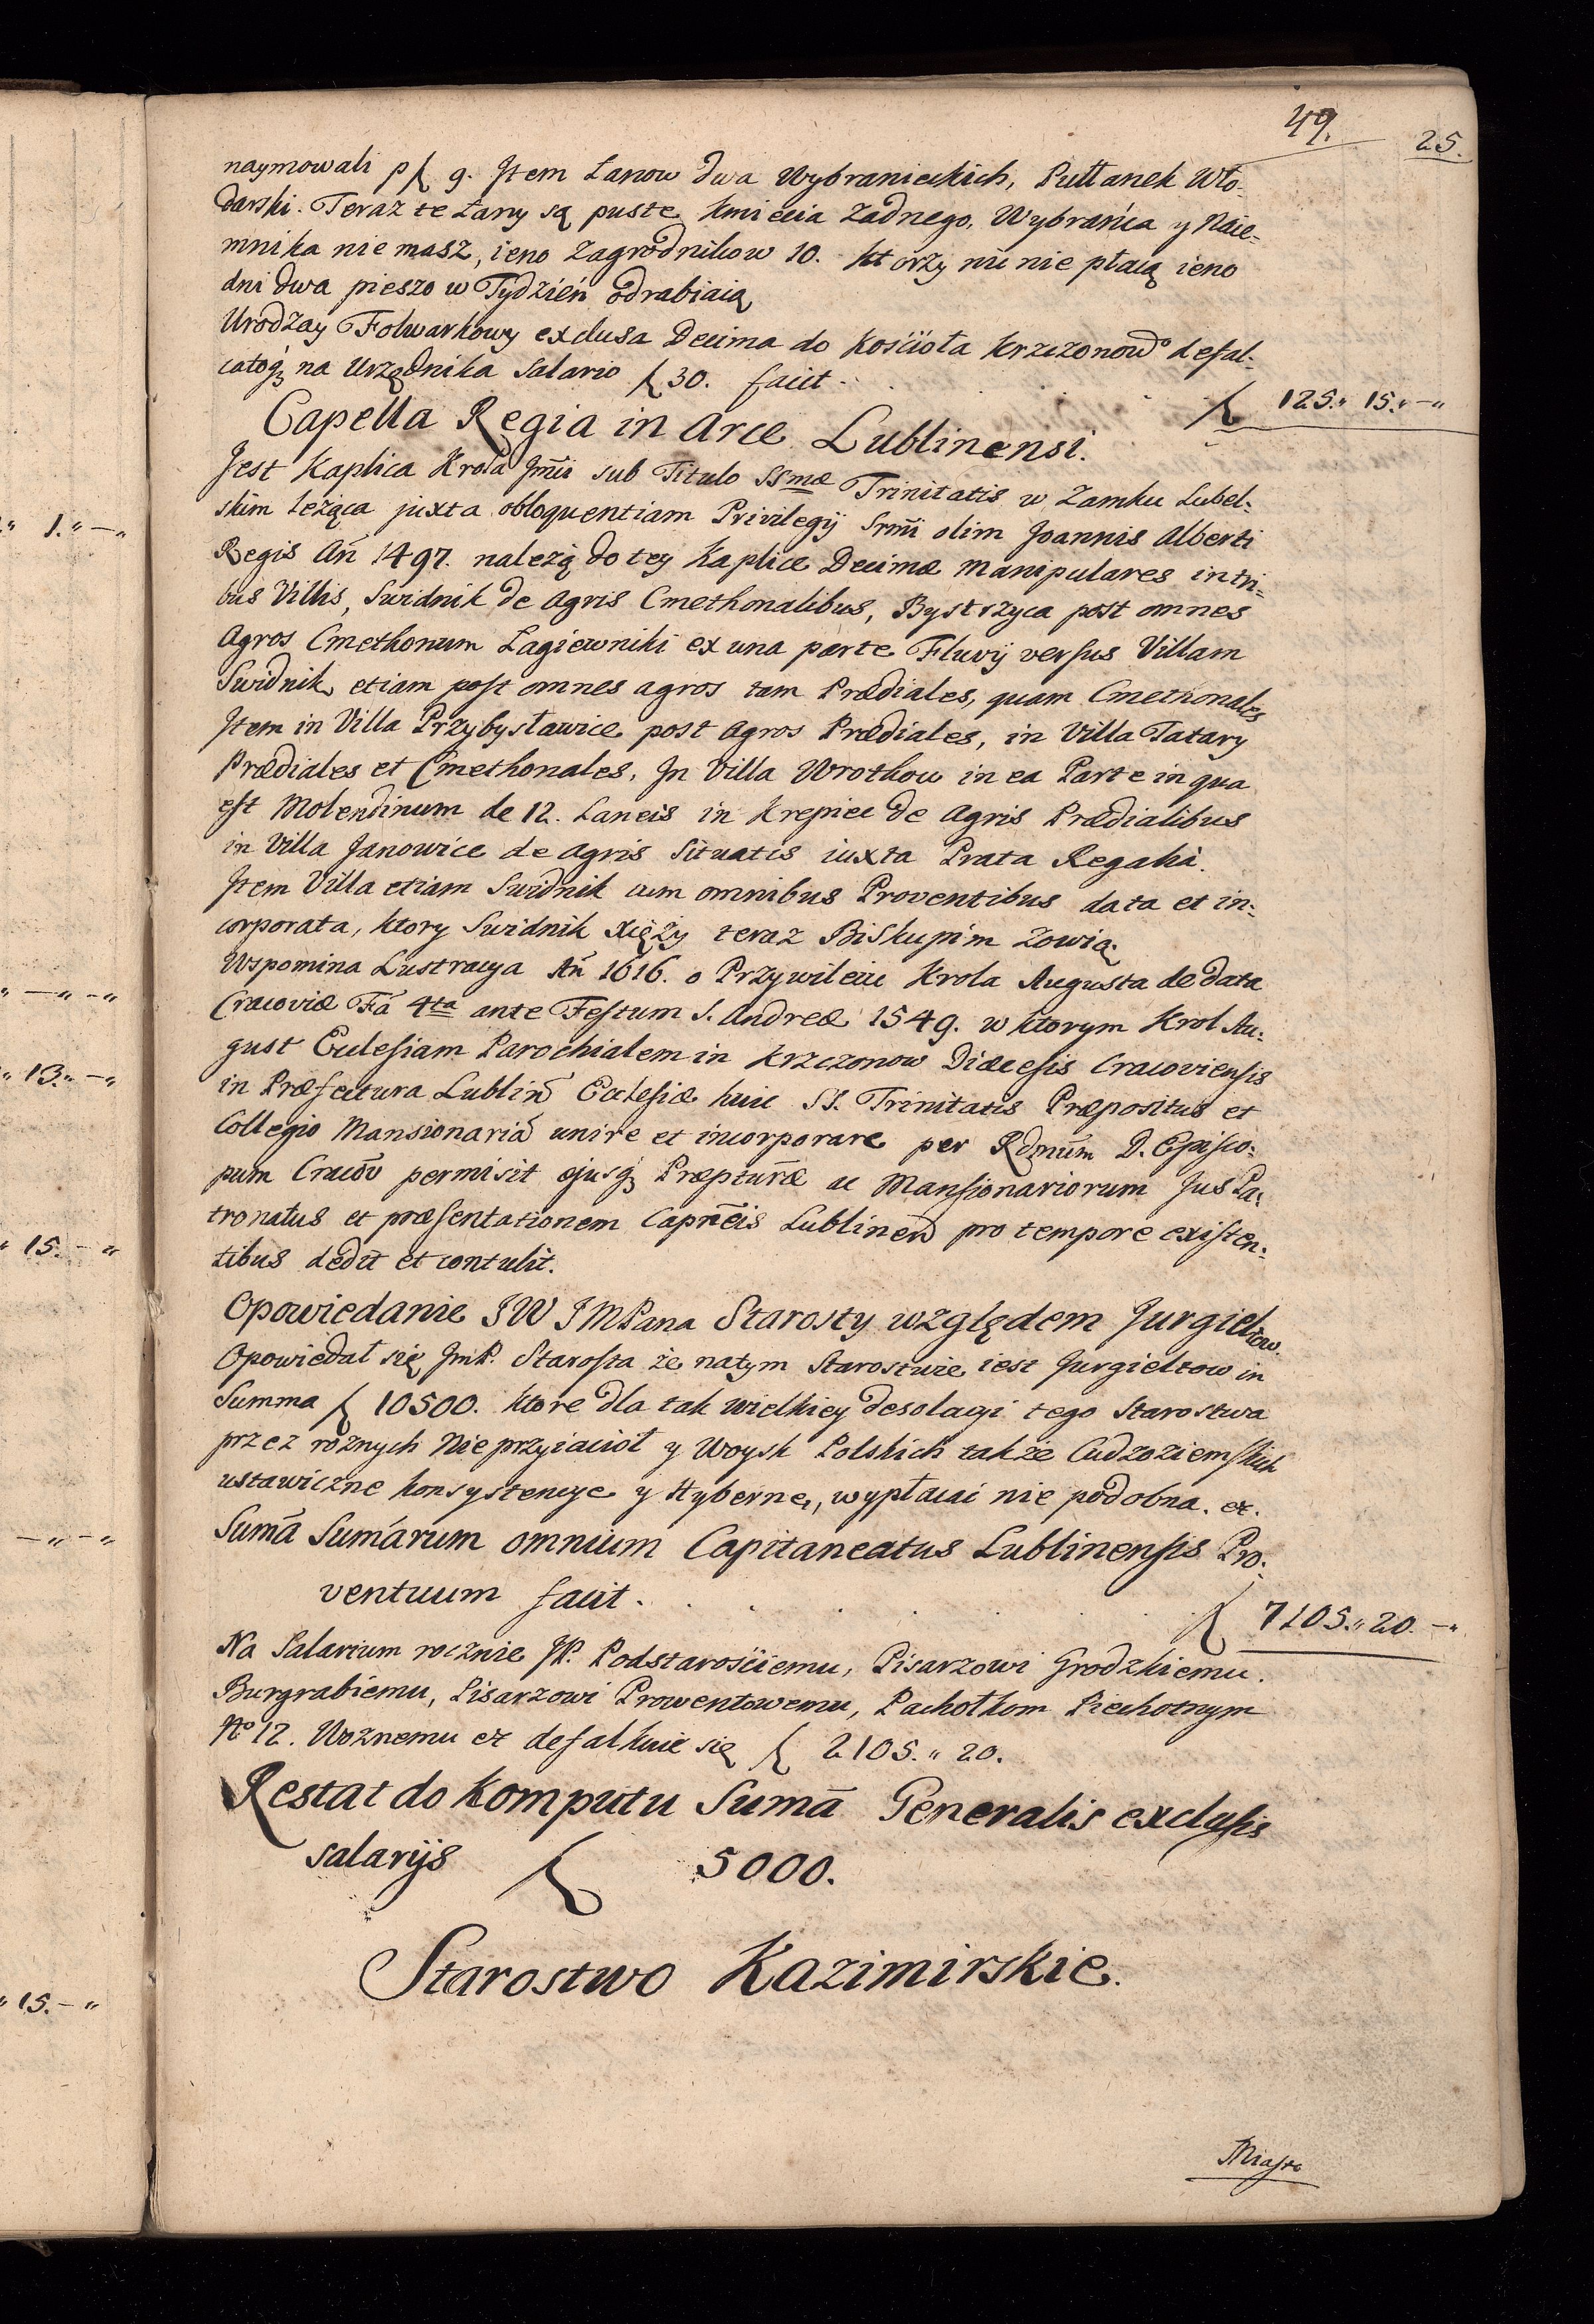 49.
25.
naymowali p ƒ 9. Item Łanow dwa Wybranieckich, Pułłanek Wło-
darski. Teraz te Łany są puste, kmiecia żadnego, Wybrańca y Naie-
mnika nie masz, ieno Zagrodnikow 10. ktorzy nic nie płacą ieno
dni dwa pieszo w Tydzień odrabiaią
Urodzay Folwarkowy exclusa Decima do Kościoła Krzczonow° defal-
catoq₃ na Urzędnika Salario ƒ 30. facit . ƒ 125.„ 15.„—„
Capella Regia in Arce Lublinensi.
Jest Kaplica Krola Jm̃ci sub Titulo SSmæ Trinitatis w Zamku Lubel-
skim leżąca juxta obloquentiam Privilegij Srm̃i olim Joannis Alberti
Regis Añ 1497. należą do tey Kaplice Decimæ manipulares in tri-
bus Villis, Swidnik de Agris Cmethonalibus, Bystrzyca post omnes
Agros Cmethonum Łagiewniki ex una parte Fluvij versus Villam
Swidnik, etiam post omnes agros tam Prædiales, quam Cmethonales
Item in Villa Przybysławice post Agros Prædiales, in Villa Tatary
Prædiales et Cmethonales, In Villa Wrotkow in ea Parte in qua
est Molendinum de 12. Laneis in Krepiec de Agris Prædialibus
in Villa Janowice de Agris Situatis iuxta Prata Regalia.
Item Villa etiam Swidnik cum omnibus Proventibus data et in-
corporata, ktory Swidnik Xięży teraz Biskupim zowią.
Wspomina Lustracya Añ 1616. o Przywileiu Krola Augusta de data
Cracoviæ Fã 4ta ante Festum S. Andreæ 1549. w ktorym Krol Au-
gust Ecclesiam Parochialem in Krzczonow Diæcesis Cracoviensis
in Præfectura Lublin̄ Ecclesiæ huic SS. Trinitatis Præpositus et
Collegio Mansionariõ unire et incorporare per Rdmũm D. Episco-
pum Cracov̄ permisit ejusq₃ Præpturæ ac Mansionariorum Jus Pa-
tronatus et præsentationem Capn̄eis Lublinen̄ pro tempore existen-
tibus dedit et contulit.
Opowiedanie JW JMPana Starosty względem Jurgieltow.
Opowiedał się JmP. Starosta że na tym Starostwie iest Jurgieltow in
Summa ƒ 10500. ktore dla tak wielkiey desolacyi tego Starostwa
przez rożnych Nieprzyiacioł y Woysk Polskich także Cudzoziemskich
ustawiczne konsystencye y Hyberne, wypłacać nie podobna. etc.
Sum̃a Sum̃arum omnium Capitaneatus Lublinensis Pro-
ventuum facit . ƒ 7105.„ 20. —„
Na Salarium rocznie JP. Podstarościemu, Pisarzowi Grodzkiemu.
Burgrabiemu, Pisarzowi Prowentowemu, Pachołkom Piechotnym
N° 12. Woznemu etc defalkuie się ƒ 2105.„ 20.
Restat do Komputu Sum̃a Generalis exclusis
salarijs ƒ 5000.
Starostwo Kazimirskie.
Miasto
„ 1.„—„
„—„—„
„ 13.„—„
„ 15.—„
—„—„
„ 15.—„